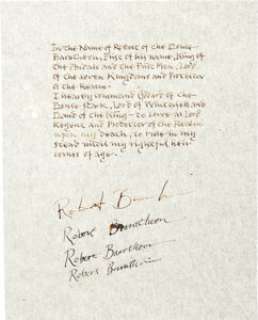 In the Name of Robert of the House
Baratheon, First of his name, King of
the Andals and the First Men, Lord
of the seven Kingdoms and Protector
of the Realm.
I hearby command Eddard of the
House Stark, Lord of Winterfell and
Hand of the King to serve as Lord
Regent and Protector of the Realm
upon my Death, to rule in my
stead until my rightful heir
comes of age.
Robert
Robert Baratheon
Robert Baratheon
Robert Baratheon